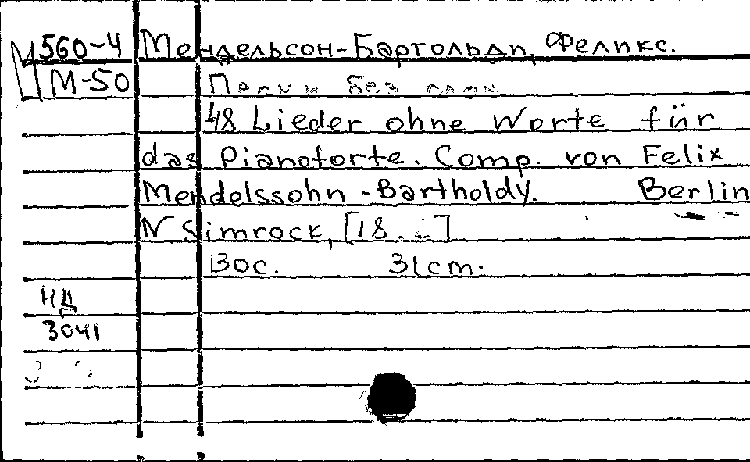 560-4 Мендельсон-Бартольди, Феликс.
М-50 Песни без слов
48 Lieder ohne Worte für
das Pianoforte. Comp. von Felix
Mendelssohn-Bartholdy. Berlin
N Simrock, [18..]
130с. 31cm.
НД
3041